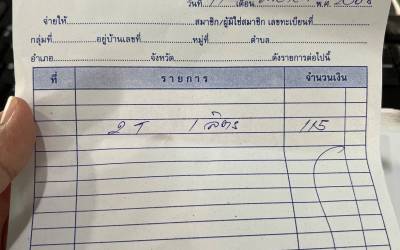 วันที่ 11 เดือน พ.ศ. 2568
จ่ายให้ สมาชิก/ผู้มิใช่สมาชิก เลขทะเบียนที่
กลุ่มที่ อยู่บ้านเลขที่ หมู่ที่ ตำบล
อำเภอ จังหวัด ดังรายการต่อไปนี้
ที่ รายการ จำนวนเงิน
2T 1 ลิตร 115